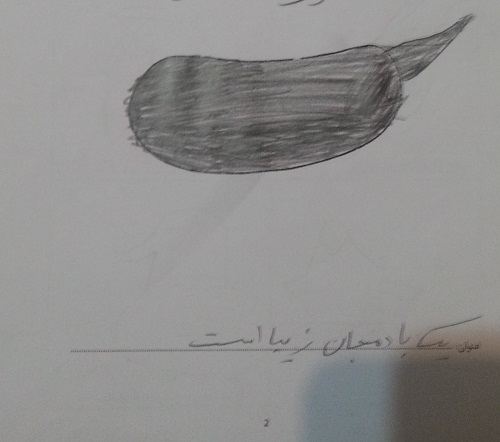 عنوان یک بادمجان زیبا است
2